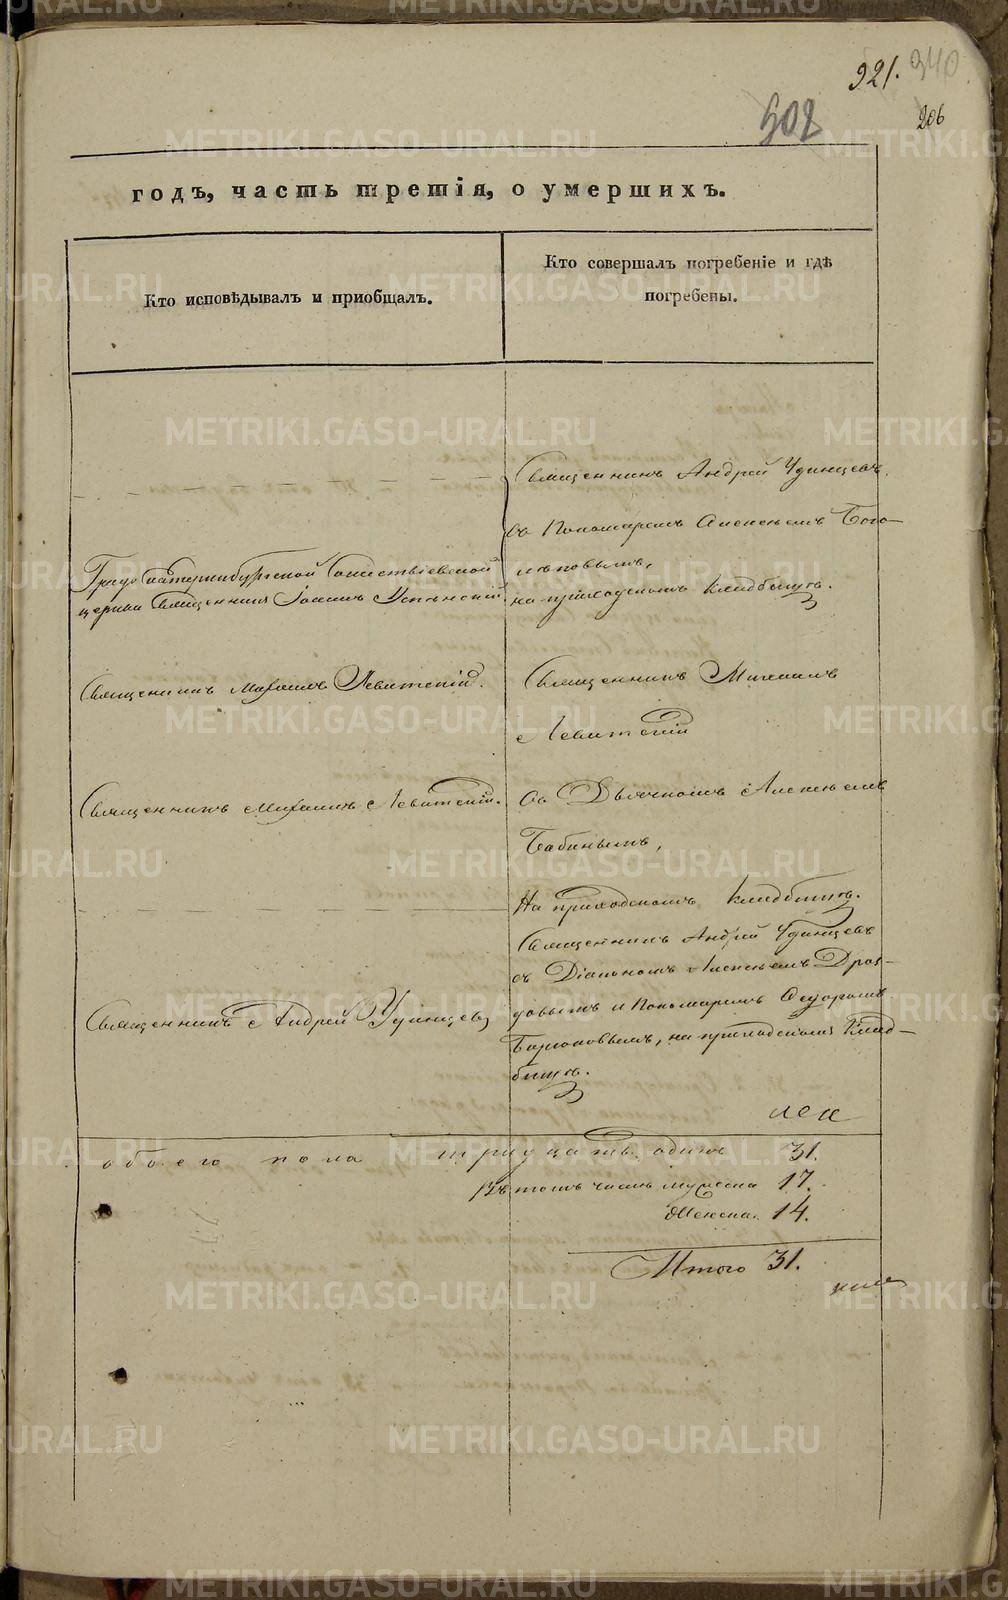 921. 340
302
206
годъ, часть третія, о умершихъ.
Кто исповѣдывалъ и пріобщалъ.
Кто совершалъ погребеніе и гдѣ
погребены.
Священникъ Андрей Удинцевъ
съ Пономаремъ Алексѣемъ Бого-
лѣповымъ,
на приходскомъ кладбищѣ.
Градо Екатеринбургской Сошествіевской
церкви Священникъ Іоаннъ Успенскій.
Священникъ Михаилъ Левитскій.
Священникъ Михаилъ
Левитскій
Священникъ Михаилъ Левитскій.
Съ Дьячкомъ Алексѣемъ
Бабинымъ,
На приходскомъ кладбищѣ.
Священникъ Андрей Удинцевъ
съ Діакономъ Алексѣемъ Дроз-
довымъ и Пономаремъ Федоромъ
на приходскомъ клад-
бищѣ.
Священникъ Андрей Удинцевъ
обоего пола тридцать одинъ 31.
Въ томъ числѣ мужеска 17.
Женска 14.
Итого 31.
METRIKI.GASO-URAL.RU